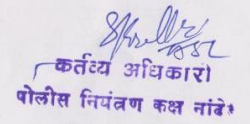 कर्तव्य अधिकारी
पोलीस नियंत्रण कक्ष नांदे